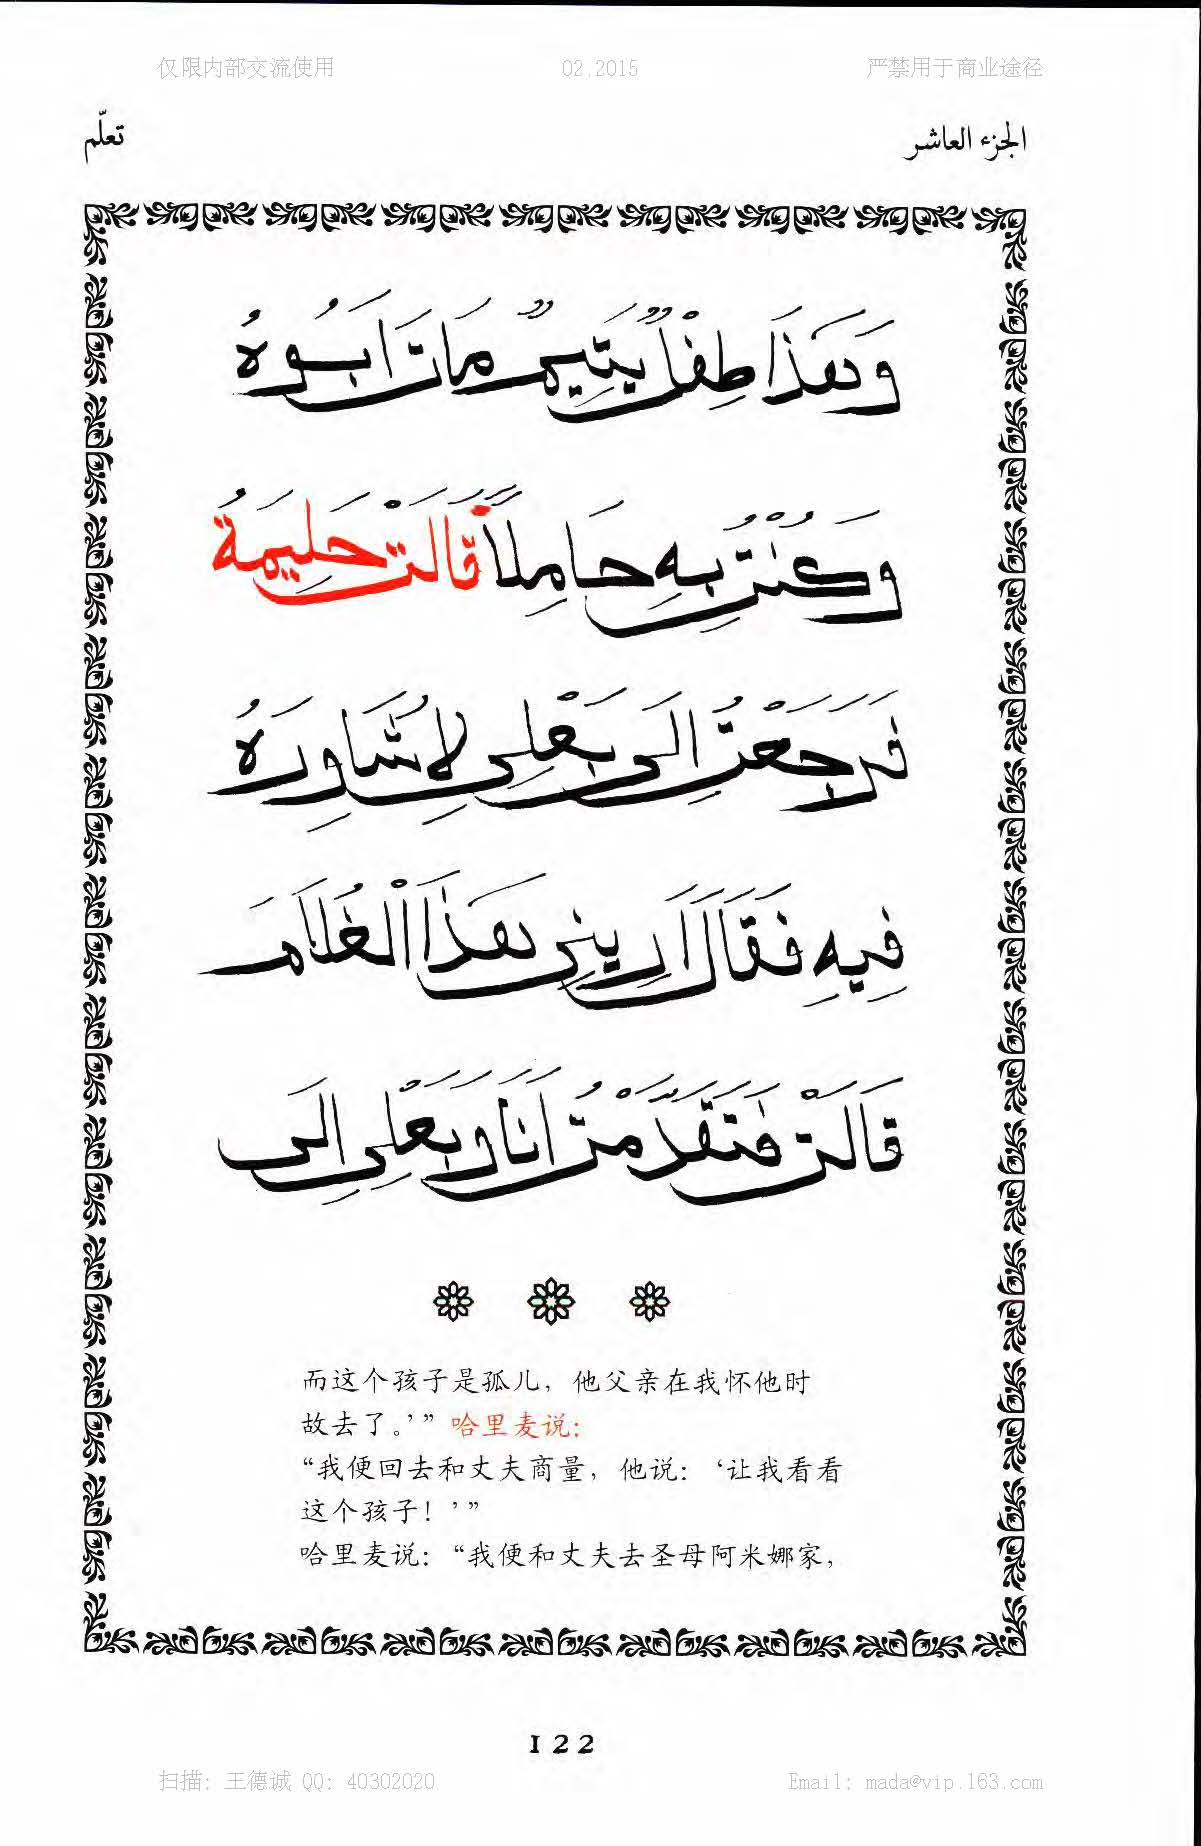 仅限内部交流使用 02.2015 严禁用于商业途径
الجزء العاشر تعلّم
وَهَذَا طِفْلٌ يَتِيمٌ مَاتَ اَبُوهُ
وَكُنْتُ بِهِ حَامِلاً قَالَتْ حَلِيمَةُ
فَرَجَعْتُ اِلَى بَعْلِي لِاُشَاوِرَهُ
فِيهِ فَقَالَ اَرِينِي هَذَا الْغُلاَمَ
قَالَتْ فَتَقَدَّمْتُ اَنَا وَبَعْلِي اِلَى
而这个孩子是孤儿，他父亲在我怀他时
故去了。’” 哈里麦说：
“我便回去和丈夫商量，他说：‘让我看看
这个孩子！’”
哈里麦说：“我便和丈夫去圣母阿米娜家，
122
扫描：王德诚 QQ：40302020 Email：mada@vip.163.com